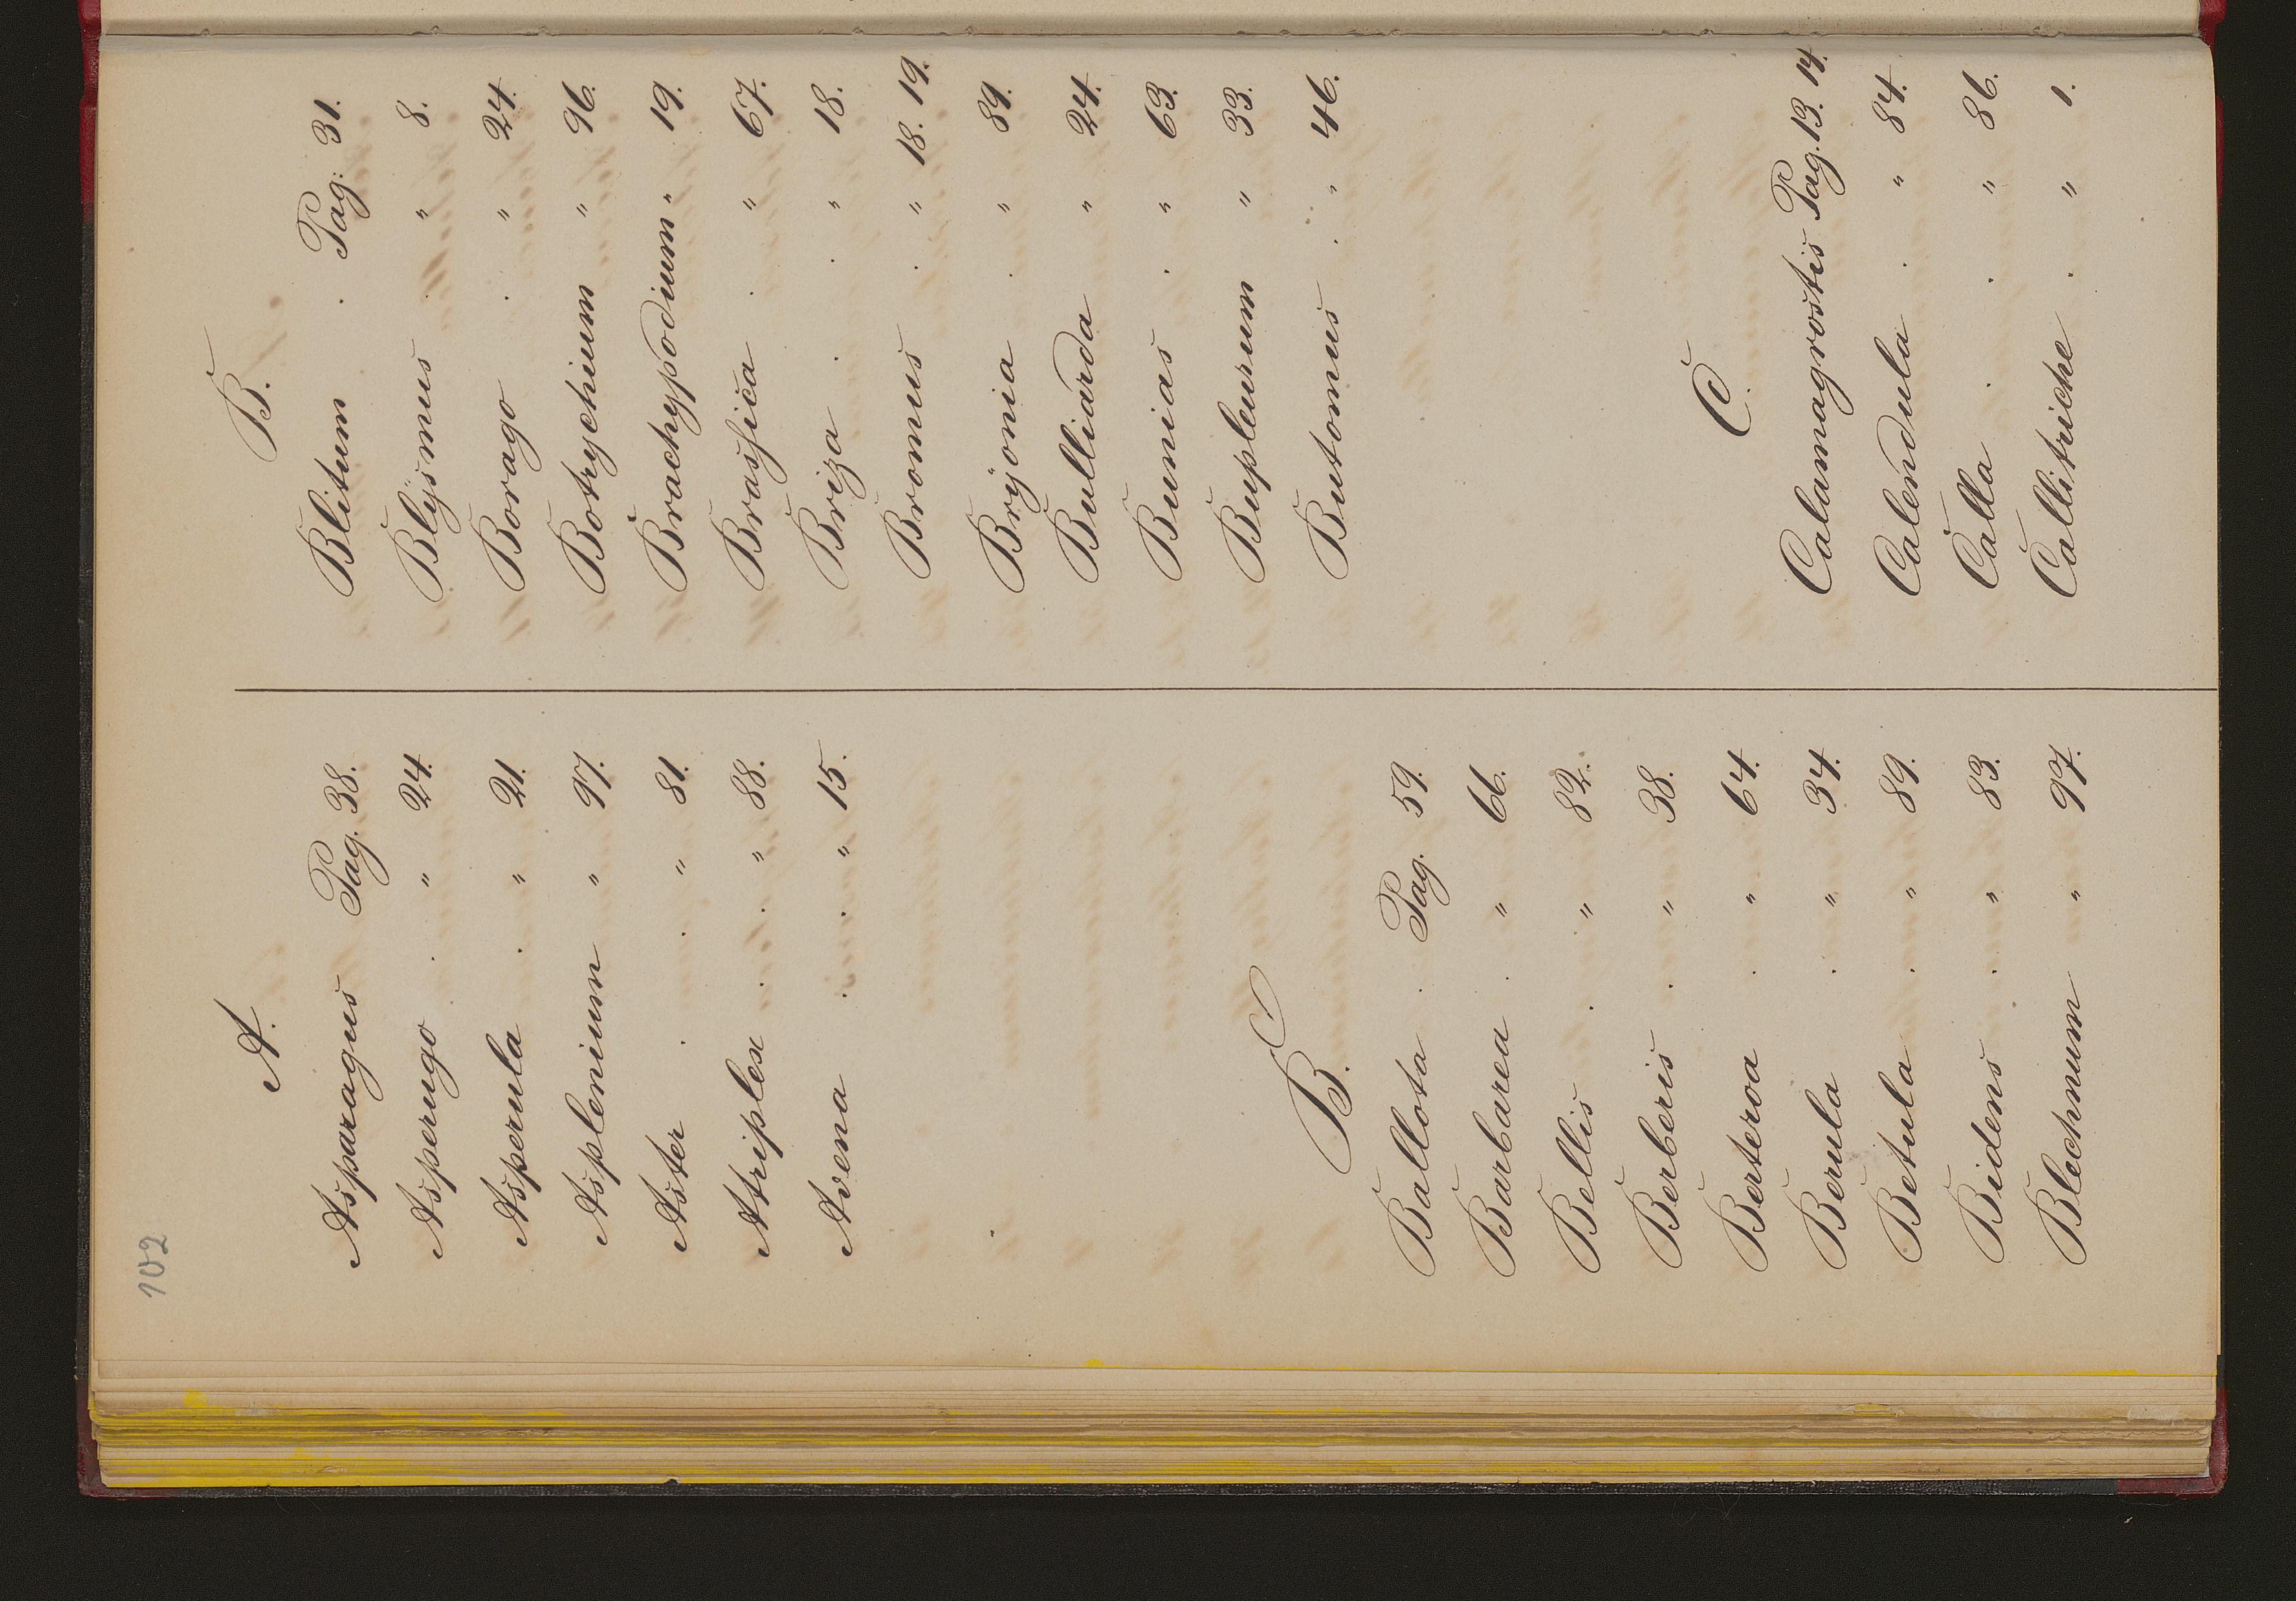 102
A.
Asparagus Pag. 38.
Asperugo . " 24.
Asperula . " 21.
Asplenium " 97.
Aster . . " 81.
Atriplex . . " 88.
Avena . . " 15.
B.
Ballota . Pag. 59.
Barbarea . " 66.
Bellis . . " 82.
Berberis . " 38.
Berteroa . " 64.
Berula . " 34.
Betula . " 89.
Bidens . " 83.
Blechnum " 97.
B.
Blitum . Pag: 31.
Blÿsmus . " 8.
Borago . " 24.
Botrychium " 96.
Brachypodium " 19.
Brassica . " 67.
Briza . . " 18.
Bromus . " 18. 19.
Brÿonia . " 89.
Bulliarda " 24.
Bunias . " 63.
Bupleurum " 33.
Butomus . " 46.
C.
Calamagrostis Pag. 13. 14.
Calendula . " 84.
Calla . . " 86.
Callitriche . " 1.